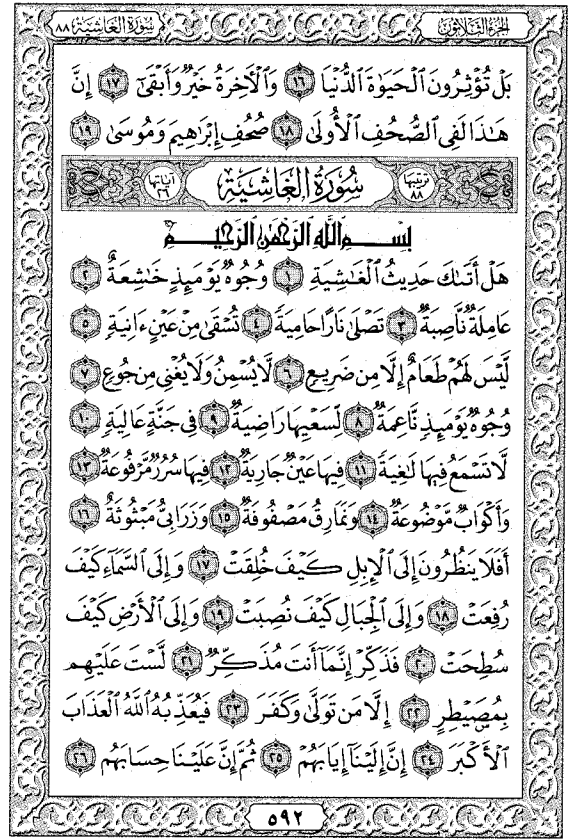 الجزء الثلاثون سورة الغاشية ٨٨
بَلْ تُؤْثِرُونَ ٱلْحَيَوٰةَ ٱلدُّنْيَا ١٦ وَٱلْأٓخِرَةُ خَيْرٌ وَأَبْقَىٰٓ ١٧ إِنَّ
هَـٰذَا لَفِى ٱلصُّحُفِ ٱلْأُولَىٰ ١٨ صُحُفِ إِبْرَٰهِيمَ وَمُوسَىٰ ١٩
ترتيبها ٨٨ سُورَةُ الْغَاشِيَةِ آياتها ٢٦
بِسْمِ ٱللَّهِ ٱلرَّحْمَـٰنِ ٱلرَّحِيمِ
هَلْ أَتَىٰكَ حَدِيثُ ٱلْغَـٰشِيَةِ ١ وُجُوهٌ يَوْمَئِذٍ خَـٰشِعَةٌ ٢
عَامِلَةٌ نَّاصِبَةٌ ٣ تَصْلَىٰ نَارًا حَامِيَةً ٤ تُسْقَىٰ مِنْ عَيْنٍ ءَانِيَةٍ ٥
لَّيْسَ لَهُمْ طَعَامٌ إِلَّا مِن ضَرِيعٍ ٦ لَّا يُسْمِنُ وَلَا يُغْنِى مِن جُوعٍ ٧
وُجُوهٌ يَوْمَئِذٍ نَّاعِمَةٌ ٨ لِّسَعْيِهَا رَاضِيَةٌ ٩ فِى جَنَّةٍ عَالِيَةٍ ١٠
لَّا تَسْمَعُ فِيهَا لَـٰغِيَةً ١١ فِيهَا عَيْنٌ جَارِيَةٌ ١٢ فِيهَا سُرُرٌ مَّرْفُوعَةٌ ١٣
وَأَكْوَابٌ مَّوْضُوعَةٌ ١٤ وَنَمَارِقُ مَصْفُوفَةٌ ١٥ وَزَرَابِىُّ مَبْثُوثَةٌ ١٦
أَفَلَا يَنظُرُونَ إِلَى ٱلْإِبِلِ كَيْفَ خُلِقَتْ ١٧ وَإِلَى ٱلسَّمَآءِ كَيْفَ
رُفِعَتْ ١٨ وَإِلَى ٱلْجِبَالِ كَيْفَ نُصِبَتْ ١٩ وَإِلَى ٱلْأَرْضِ كَيْفَ
سُطِحَتْ ٢٠ فَذَكِّرْ إِنَّمَآ أَنتَ مُذَكِّرٌ ٢١ لَّسْتَ عَلَيْهِم
بِمُصَۜيْطِرٍ ٢٢ إِلَّا مَن تَوَلَّىٰ وَكَفَرَ ٢٣ فَيُعَذِّبُهُ ٱللَّهُ ٱلْعَذَابَ
ٱلْأَكْبَرَ ٢٤ إِنَّ إِلَيْنَآ إِيَابَهُمْ ٢٥ ثُمَّ إِنَّ عَلَيْنَا حِسَابَهُم ٢٦
٥٩٢